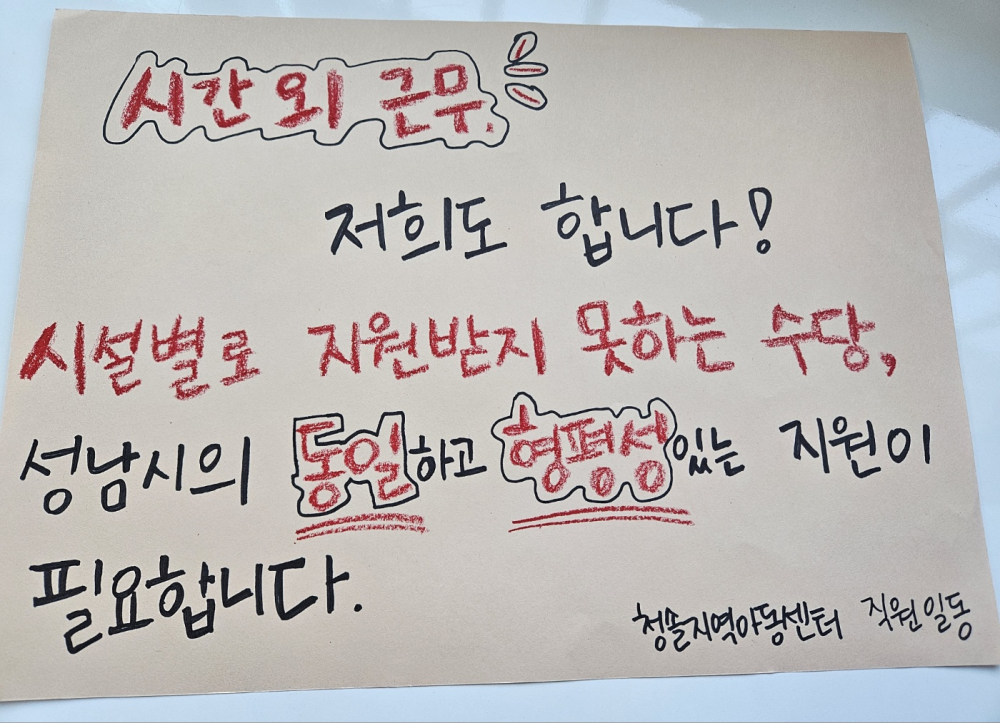 시간 외 근무.
저희도 합니다!
시설별로 지원받지 못하는 수당,
성남시의 동일하고 형평성있는 지원이
필요합니다.
청솔지역아동센터 직원일동